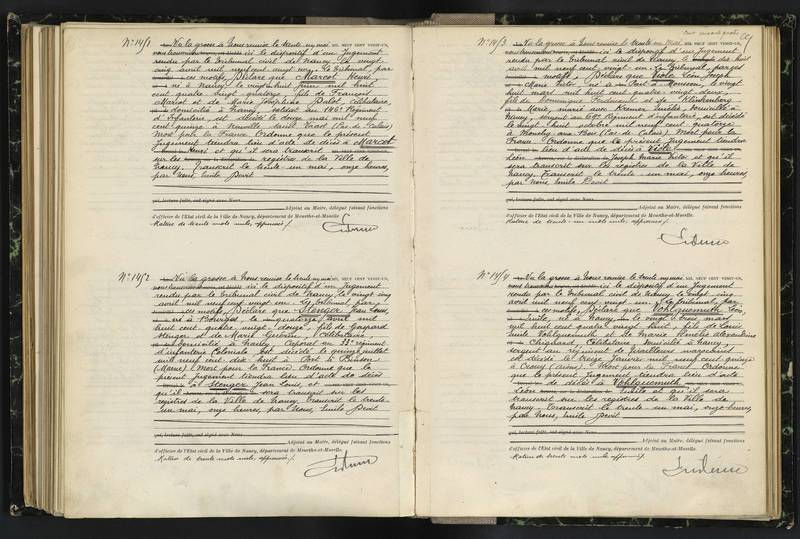 N° 1451
Vu la grosse à Nous remise le trente un mai MIL NEUF CENT VINGT-UN,
ici le dispositif d'un Jugement
rendu par le Tribunal civil de Nancy le vingt
cinq avril mil neuf cent vingt un. Le Tribunal, par
ces motifs, Déclare que Marcot Henri,
né à Nancy le vingt huit juin mil huit
cent quatre vingt quatorze, fils de François
Marcot et de Marie Joséphine Balot, célibataire,
domicilié à Nancy, soldat au 146e Régiment
d'Infanterie, est décédé le douze mai mil neuf
cent quinze à Neuville Saint Vaast (Pas de Calais)
Mort pour la France. Ordonne que le présent
Jugement tiendra lieu d'acte de décès à Marcot
Henri et qu'il sera transcrit
sur les registres de la Ville de
Nancy. Transcrit le trente un mai, onze heures,
par Nous, Emile Devit
qui, lecture faite, ont signé avec Nous
Adjoint au Maire, délégué faisant fonctions
d'officier de l'Etat civil de la Ville de Nancy, département de Meurthe-et-Moselle.
Rature de trente mots nuls, approuvée /.
N° 1452
Vu la grosse à Nous remise le trente un mai MIL NEUF CENT VINGT-UN,
ici le dispositif d'un Jugement
rendu par le Tribunal civil de Nancy, le vingt cinq
avril mil neuf cent vingt un. Le Tribunal, par
ces motifs, Déclare que Stenger Jean Louis,
né à quatorze avril mil
huit cent quatre vingt douze, fils de Gaspard
Stenger et de Marie célibataire
domicilié à Nancy, Caporal au 33e régiment
d'infanterie Coloniale est décédé le quinze juillet
mil neuf cent dix huit à Port à Binson
(Marne) (Mort pour la France). Ordonne que le
présent Jugement tiendra lieu d'acte de décès
à Stenger Jean Louis, et
qu'il sera transcrit sur les
registres de la Ville de Nancy. Transcrit le trente
un mai, onze heures, par Nous, Emile Devit
qui, lecture faite, ont signé avec Nous
Adjoint au Maire, délégué faisant fonctions
d'officier de l'Etat civil de la Ville de Nancy, département de Meurthe-et-Moselle.
Rature de trente mots nuls, approuvée /.
N° 1453
Vu la grosse à Nous remise le trente un mai MIL NEUF CENT VINGT-UN,
ici le dispositif d'un Jugement
rendu par le Tribunal civil de Nancy le dix huit
avril mil neuf cent vingt un. Le Tribunal, par ces
motifs, Déclare que Viole Léon Joseph
Marie Victor né à Pont à Mousson, le vingt
huit mars mil huit cent quatre vingt deux,
fils de Dominique Ferdinand et de
Marie, marié à domicilié à
Nancy, sergent au 69e Régiment d'infanterie, est décédé
le vingt huit octobre mil neuf cent quatorze
à Monchy aux Bois (Pas de Calais) Mort pour la
France. Ordonne que le présent Jugement tiendra
lieu d'acte de décès à Viole
Léon Joseph Marie Victor et qu'il
sera transcrit sur les registres de la Ville de
Nancy. Transcrit le trente un mai, onze heures,
par Nous, Emile Devit
qui, lecture faite, ont signé avec Nous
Adjoint au Maire, délégué faisant fonctions
d'officier de l'Etat civil de la Ville de Nancy, département de Meurthe-et-Moselle.
Rature de trente un mots nuls, approuvée /.
N° 1454
Vu la grosse à Nous remise le trente un mai MIL NEUF CENT VINGT-UN,
ici le dispositif d'un Jugement
rendu par le Tribunal civil de Nancy, le vingt cinq
avril mil neuf cent vingt un. Le Tribunal, par
ces motifs, Déclare que Vohlguemuth Léon,
Emile, né à Nancy, le vingt trois mars
mil huit cent quatre vingt huit, fils de Louis
Emile Vohlguemuth et de Marie
Chignard, Célibataire, domicilié à Nancy,
sergent au régiment de tirailleurs marocains
est décédé le treize janvier mil neuf cent quinze
à Crouy (Aisne). Mort pour la France. Ordonne
que le présent Jugement tiendra lieu d'acte
de décès à Vohlguemuth
Léon Emile et qu'il sera
transcrit sur les registres de la Ville de
Nancy. Transcrit le trente un mai, onze heures,
par Nous, Emile Devit
qui, lecture faite, ont signé avec Nous
Adjoint au Maire, délégué faisant fonctions
d'officier de l'Etat civil de la Ville de Nancy, département de Meurthe-et-Moselle.
Rature de trente mots nuls, approuvée /.